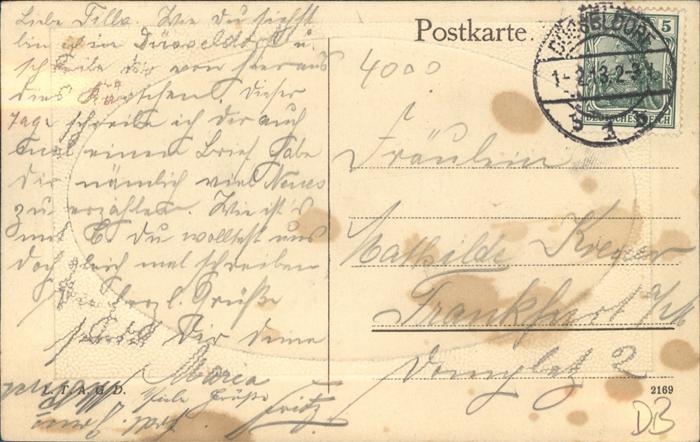 Liebe Tilla. Wie Du siehst
bin ich in Düsseldorf u.
schreibe Dir von hier aus
dies Kärtchen. Dieser
Tage schreibe ich Dir auch
mal einen Brief. Habe
Dir nämlich viel Neues
zu erzählen. Wie ist's
mit Du wolltest uns
doch gleich mal schreiben
herzl. Grüße
sendet Dir deine
Maria
Viele Grüße
Fritz
L. T. A. G. D.
Postkarte.
4000
DÜSSELDORF
1-2.13.2-3
5
DEUTSCHES REICH
Fräulein
Mathilde Kieger
Frankfurt a/M
Domplatz 2
2169
DB